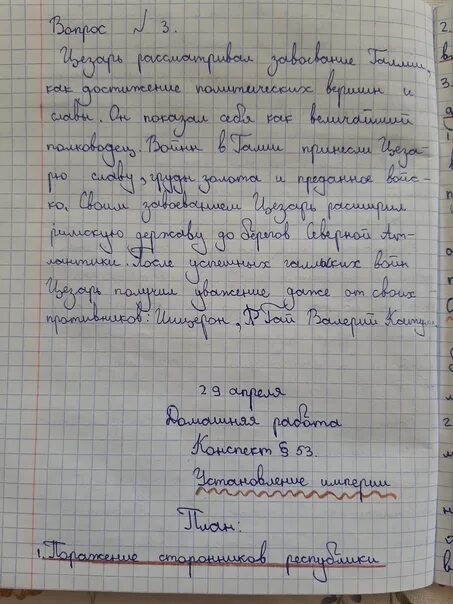 Вопрос № 3.
Цезарь рассматривал завоевание Галлии,
как достижение политических вершин и
славы. Он показал себя как величайший
полководец. Войны в Галии принесли Цеза-
рю славу, груды золота и преданное войс-
ко. Своим завоеванием Цезарь расширил
римскую державу до берегов Северной Ат-
лантики. После успешных галльских войн
Цезарь получил уважение даже от своих
противников: Цицерон, Гай Валерий
29 апреля
Домашняя работа
Конспект § 53.
Установление империи
План:
1. Поражение сторонников республики